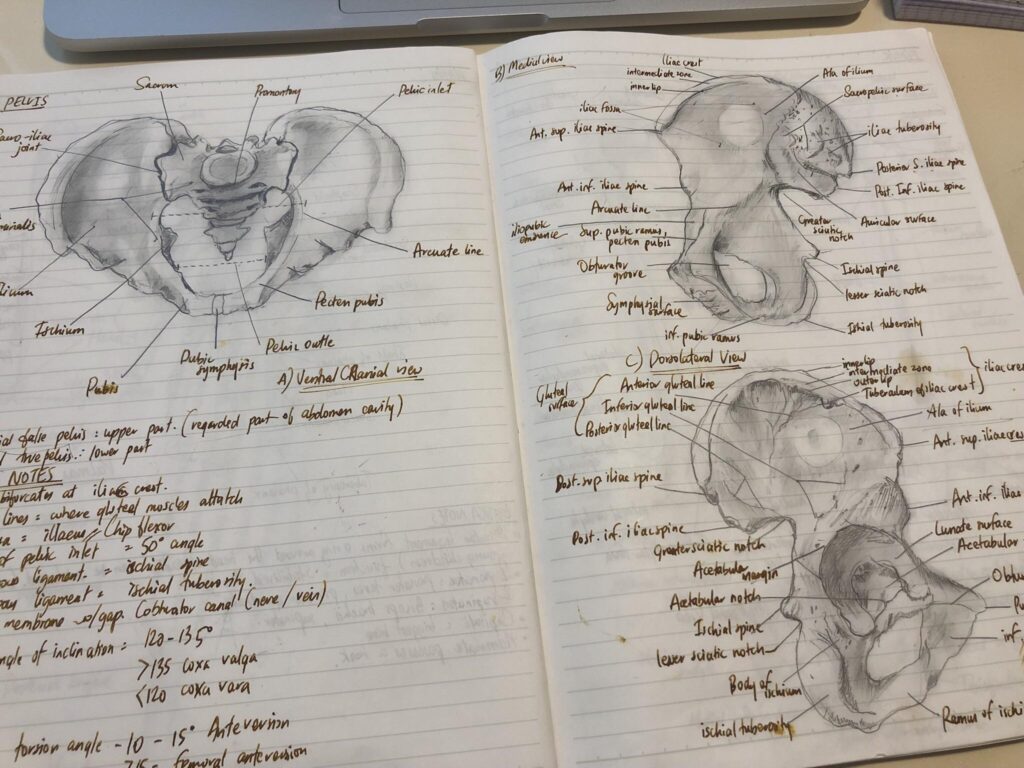 PELVIS
Sacrum
Promontory
Pelvic inlet
joint
Arcuate line
Pecten pubis
Ischium
Pubic symphysis
Pelvic outle
Pubis
A) Ventral Cranial view
false pelvis : upper part. (regarded part of abdomen cavity)
true pelvis : lower part
NOTES
bifurcates at iliac crest.
lines = where gluteal muscles attatch
= illaeus / hip flexor
of pelvic inlet = 50° angle
ligament. = ischial spine
ligament = ischial tuberosity.
membrane w/gap. Cobturator canal (nerve / vein)
angle of inclination = 120-135°
>135 coxa valga
<120 coxa vara
torsion angle - 10 - 15° Anteversion
>15 = femoral anteversion
B) Medial view
iliac crest
intermediate zone
inner lip
iliac fossa
Ant. sup. iliac spine
Ant. inf. iliac spine
Arcuate line
iliopubic eminence
Sup. pubic ramus,
pecten pubis
Obturator groove
Symphysial surface
inf. pubic ramus
Ala of ilium
Sacropelvic surface
iliac tuberosity
Posterior S. iliac spine
Post. Inf. iliac spine
Auricular surface
Greater sciatic notch
Ischial spine
lesser sciatic notch
Ishial tuberosity
C) Dorsolateral View
Gluteal surface
Anterior gluteal line
Inferior gluteal line
Posterior gluteal line
inner lip
intermediate zone
outer lip
Tuberculum of iliac crest
Ala of ilium
Ant. sup. iliac
Post. sup iliac spine
Post. inf. iliac spine
Greater sciatic notch
Acetabular margin
Acetabular notch
Ischial spine
lesser sciatic notch
Body of ischium
ischial tuberosity
Ant. inf. iliac
Lunate surface
Acetabular
inf.
Ramus of ischi